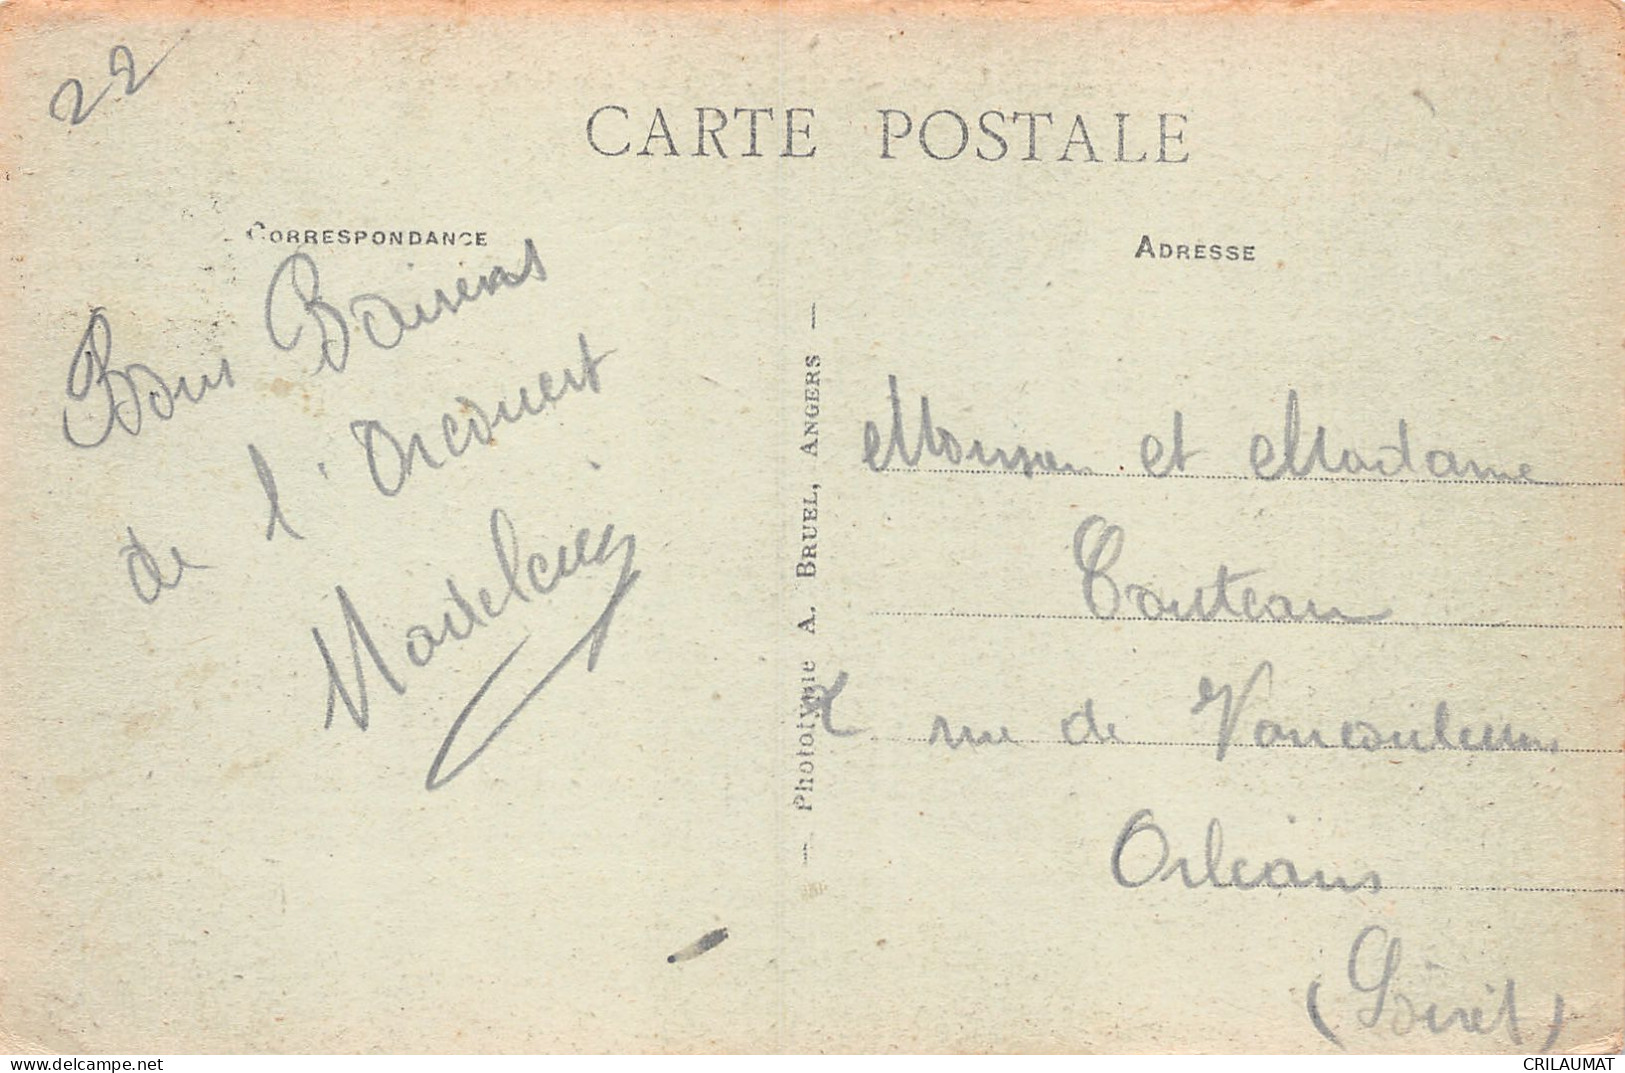 22
CARTE POSTALE
CORRESPONDANCE
ADRESSE
Bons Baisers
de l'Arcouest
Madeleine
— Phototypie A. Bruel, Angers —
Monsieur et Madame
Couteau
2 rue de Vaucouleurs
Orléans
(Loiret)
delcampe.net
CRILAUMAT